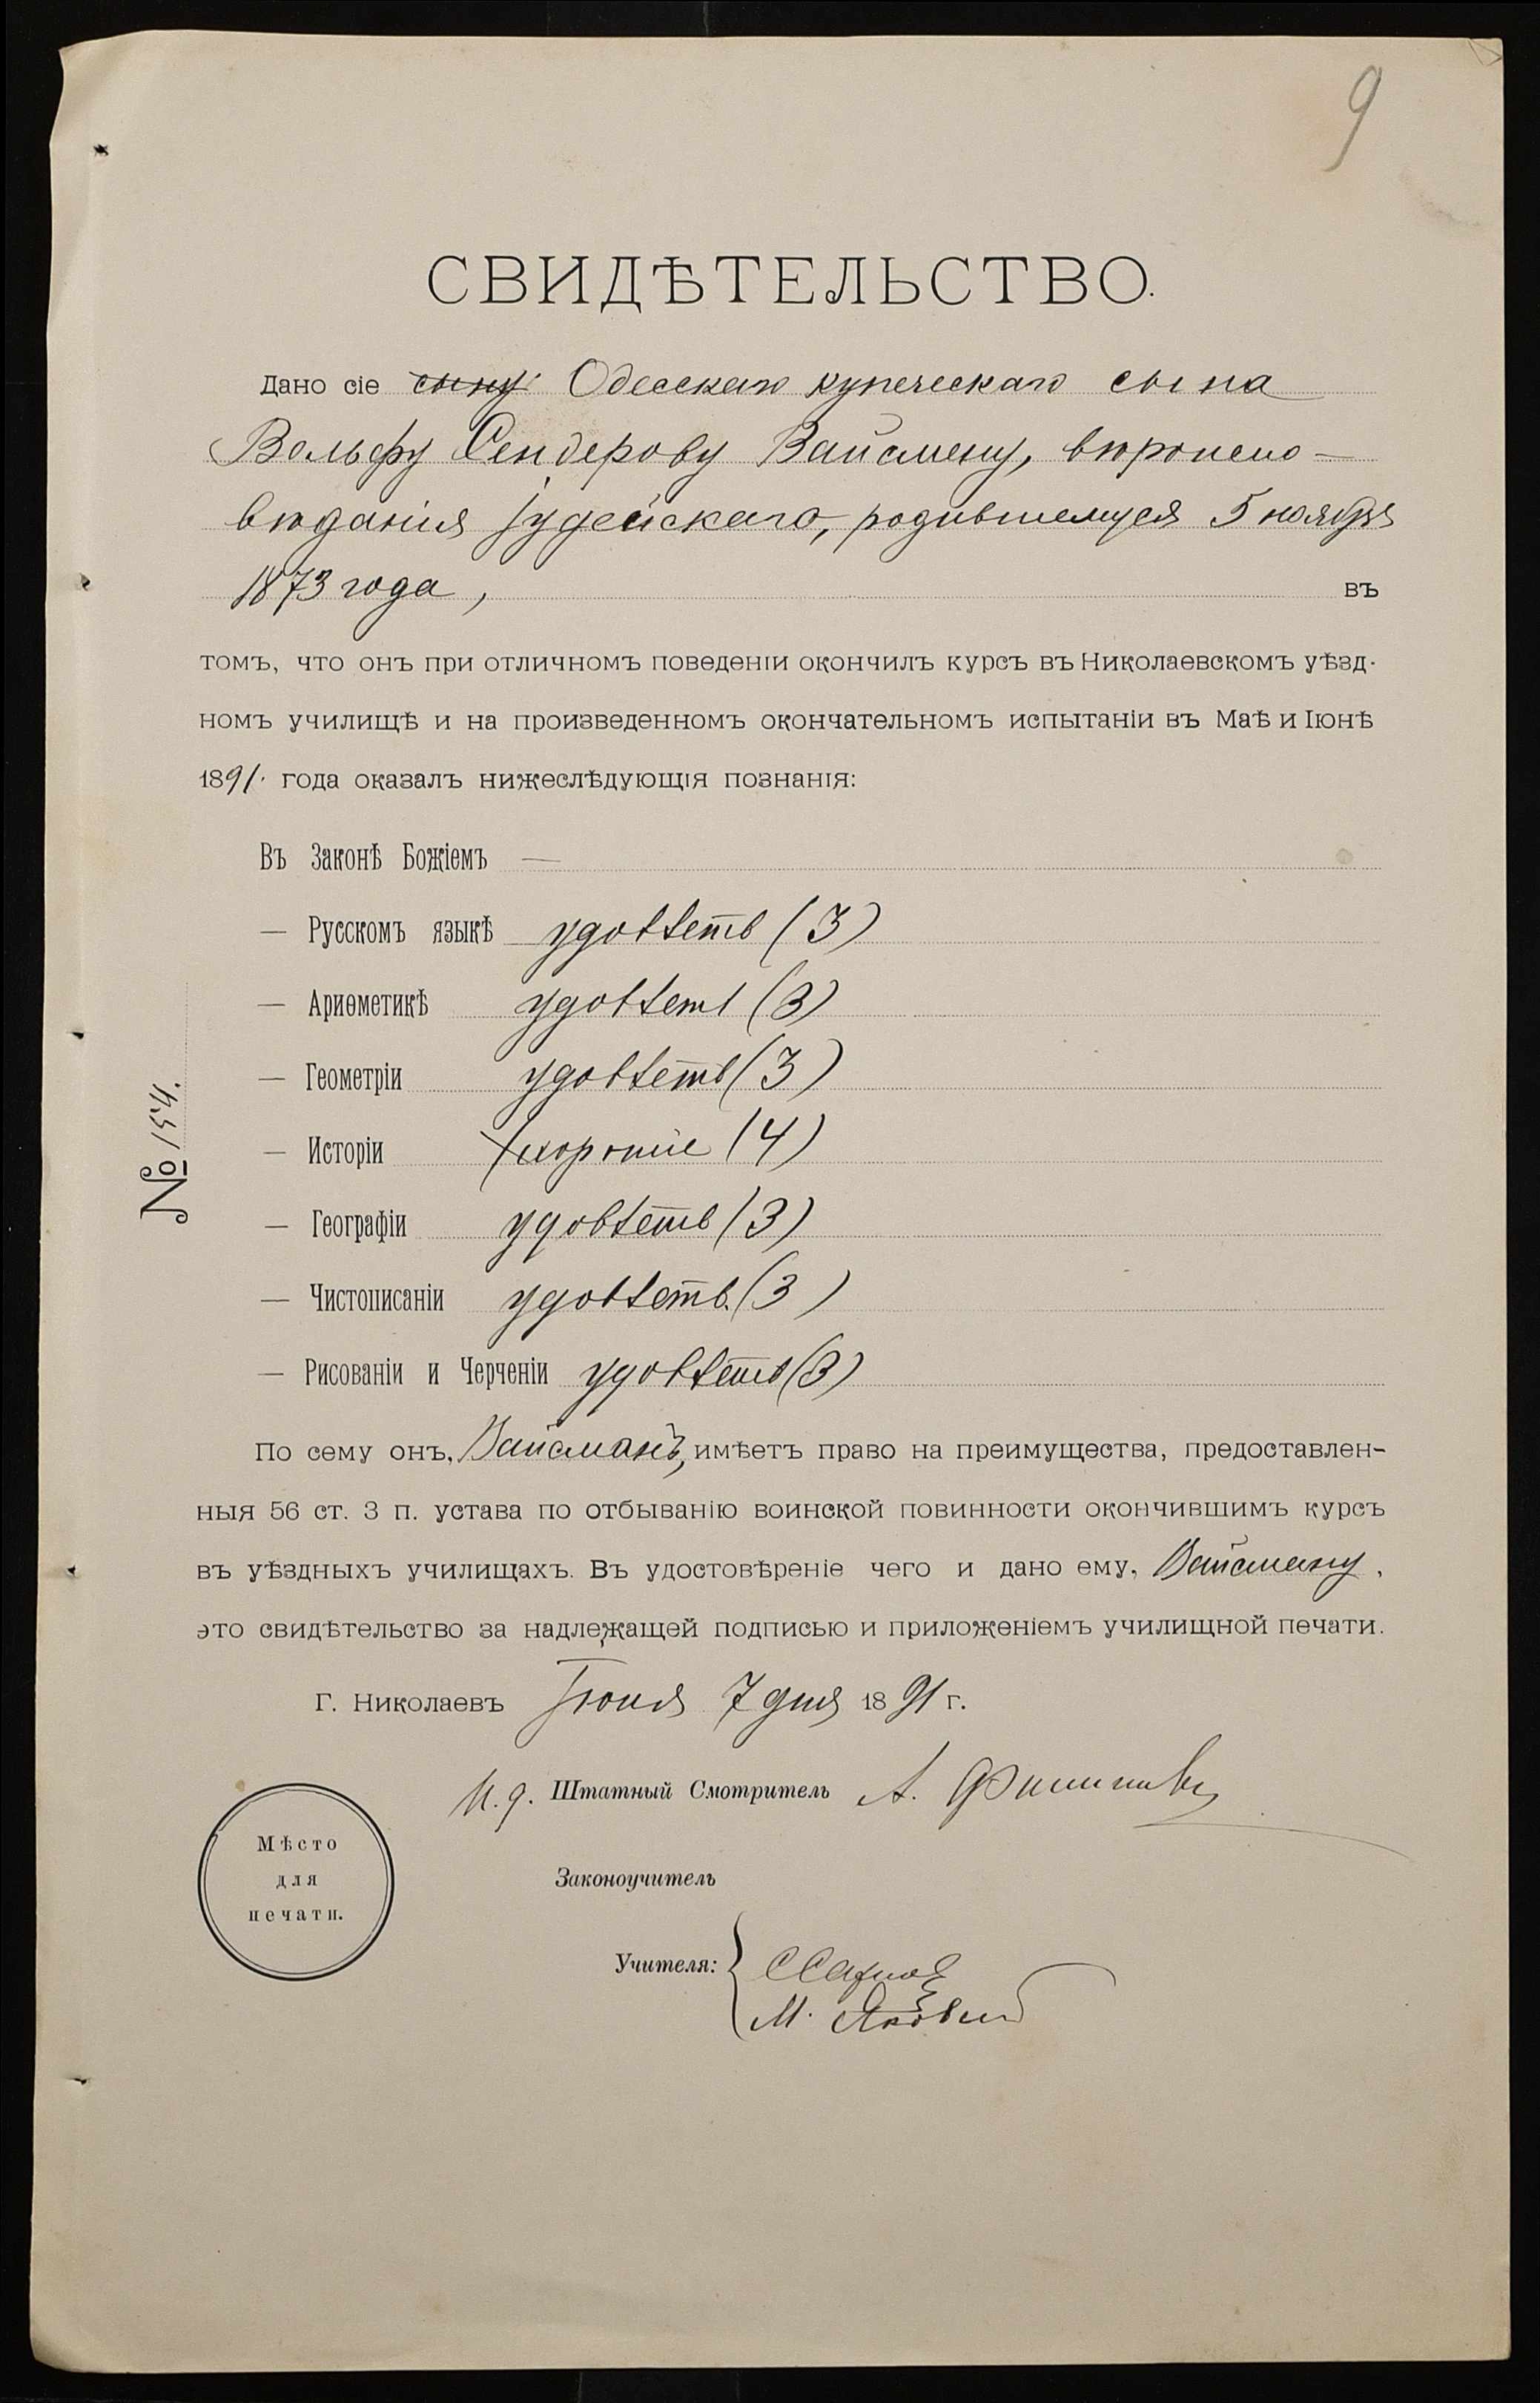 9
СВИДѢТЕЛЬСТВО.
Дано сіе сыну Одесскаго купеческаго сына
Вольфу Сендерову Вайсману, вѣроиспо-
вѣданія іудейскаго, родившемуся 5 ноября
1873 года, въ
томъ, что онъ при отличномъ поведеніи окончилъ курсъ въ Николаевскомъ уѣзд-
номъ училищѣ и на произведенномъ окончательномъ испытаніи въ Маѣ и Іюнѣ
1891. года оказалъ нижеслѣдующія познанія:
Въ Законѣ Божіемъ —
— Русскомъ языкѣ удовлетв (3)
— Ариѳметикѣ удовлетв (3)
— Геометріи удовлетв (3)
— Исторіи хорошіе (4)
— Географіи удовлетв (3)
— Чистописаніи удовлетв. (3)
— Рисованіи и Черченіи удовлетв (3)
№ 154.
По сему онъ, Вайсманъ, имѣетъ право на преимущества, предоставлен-
ныя 56 ст. 3 п. устава по отбыванію воинской повинности окончившимъ курсъ
въ уѣздныхъ училищахъ. Въ удостовѣреніе чего и дано ему, Вайсману,
это свидѣтельство за надлежащей подписью и приложеніемъ училищной печати.
Г. Николаевъ Іюня 7 дня 1891 г.
И. д. Штатный Смотритель А.
Мѣсто
для
печати.
Законоучитель
Учителя:
М.